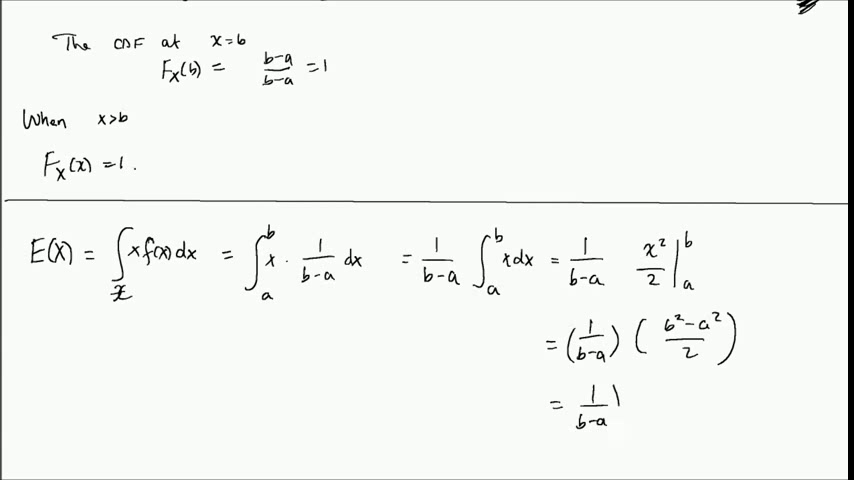 The CDF at x=b
F_X(b) = b-a/b-a = 1
When x>b
F_X(x) = 1.
E(X) = ∫_x x f(x) dx = ∫_a^b x · 1/b-a dx = 1/b-a ∫_a^b x dx = 1/b-a x²/2 |_a^b
= (1/b-a) (b²-a²/2)
= 1/b-a )